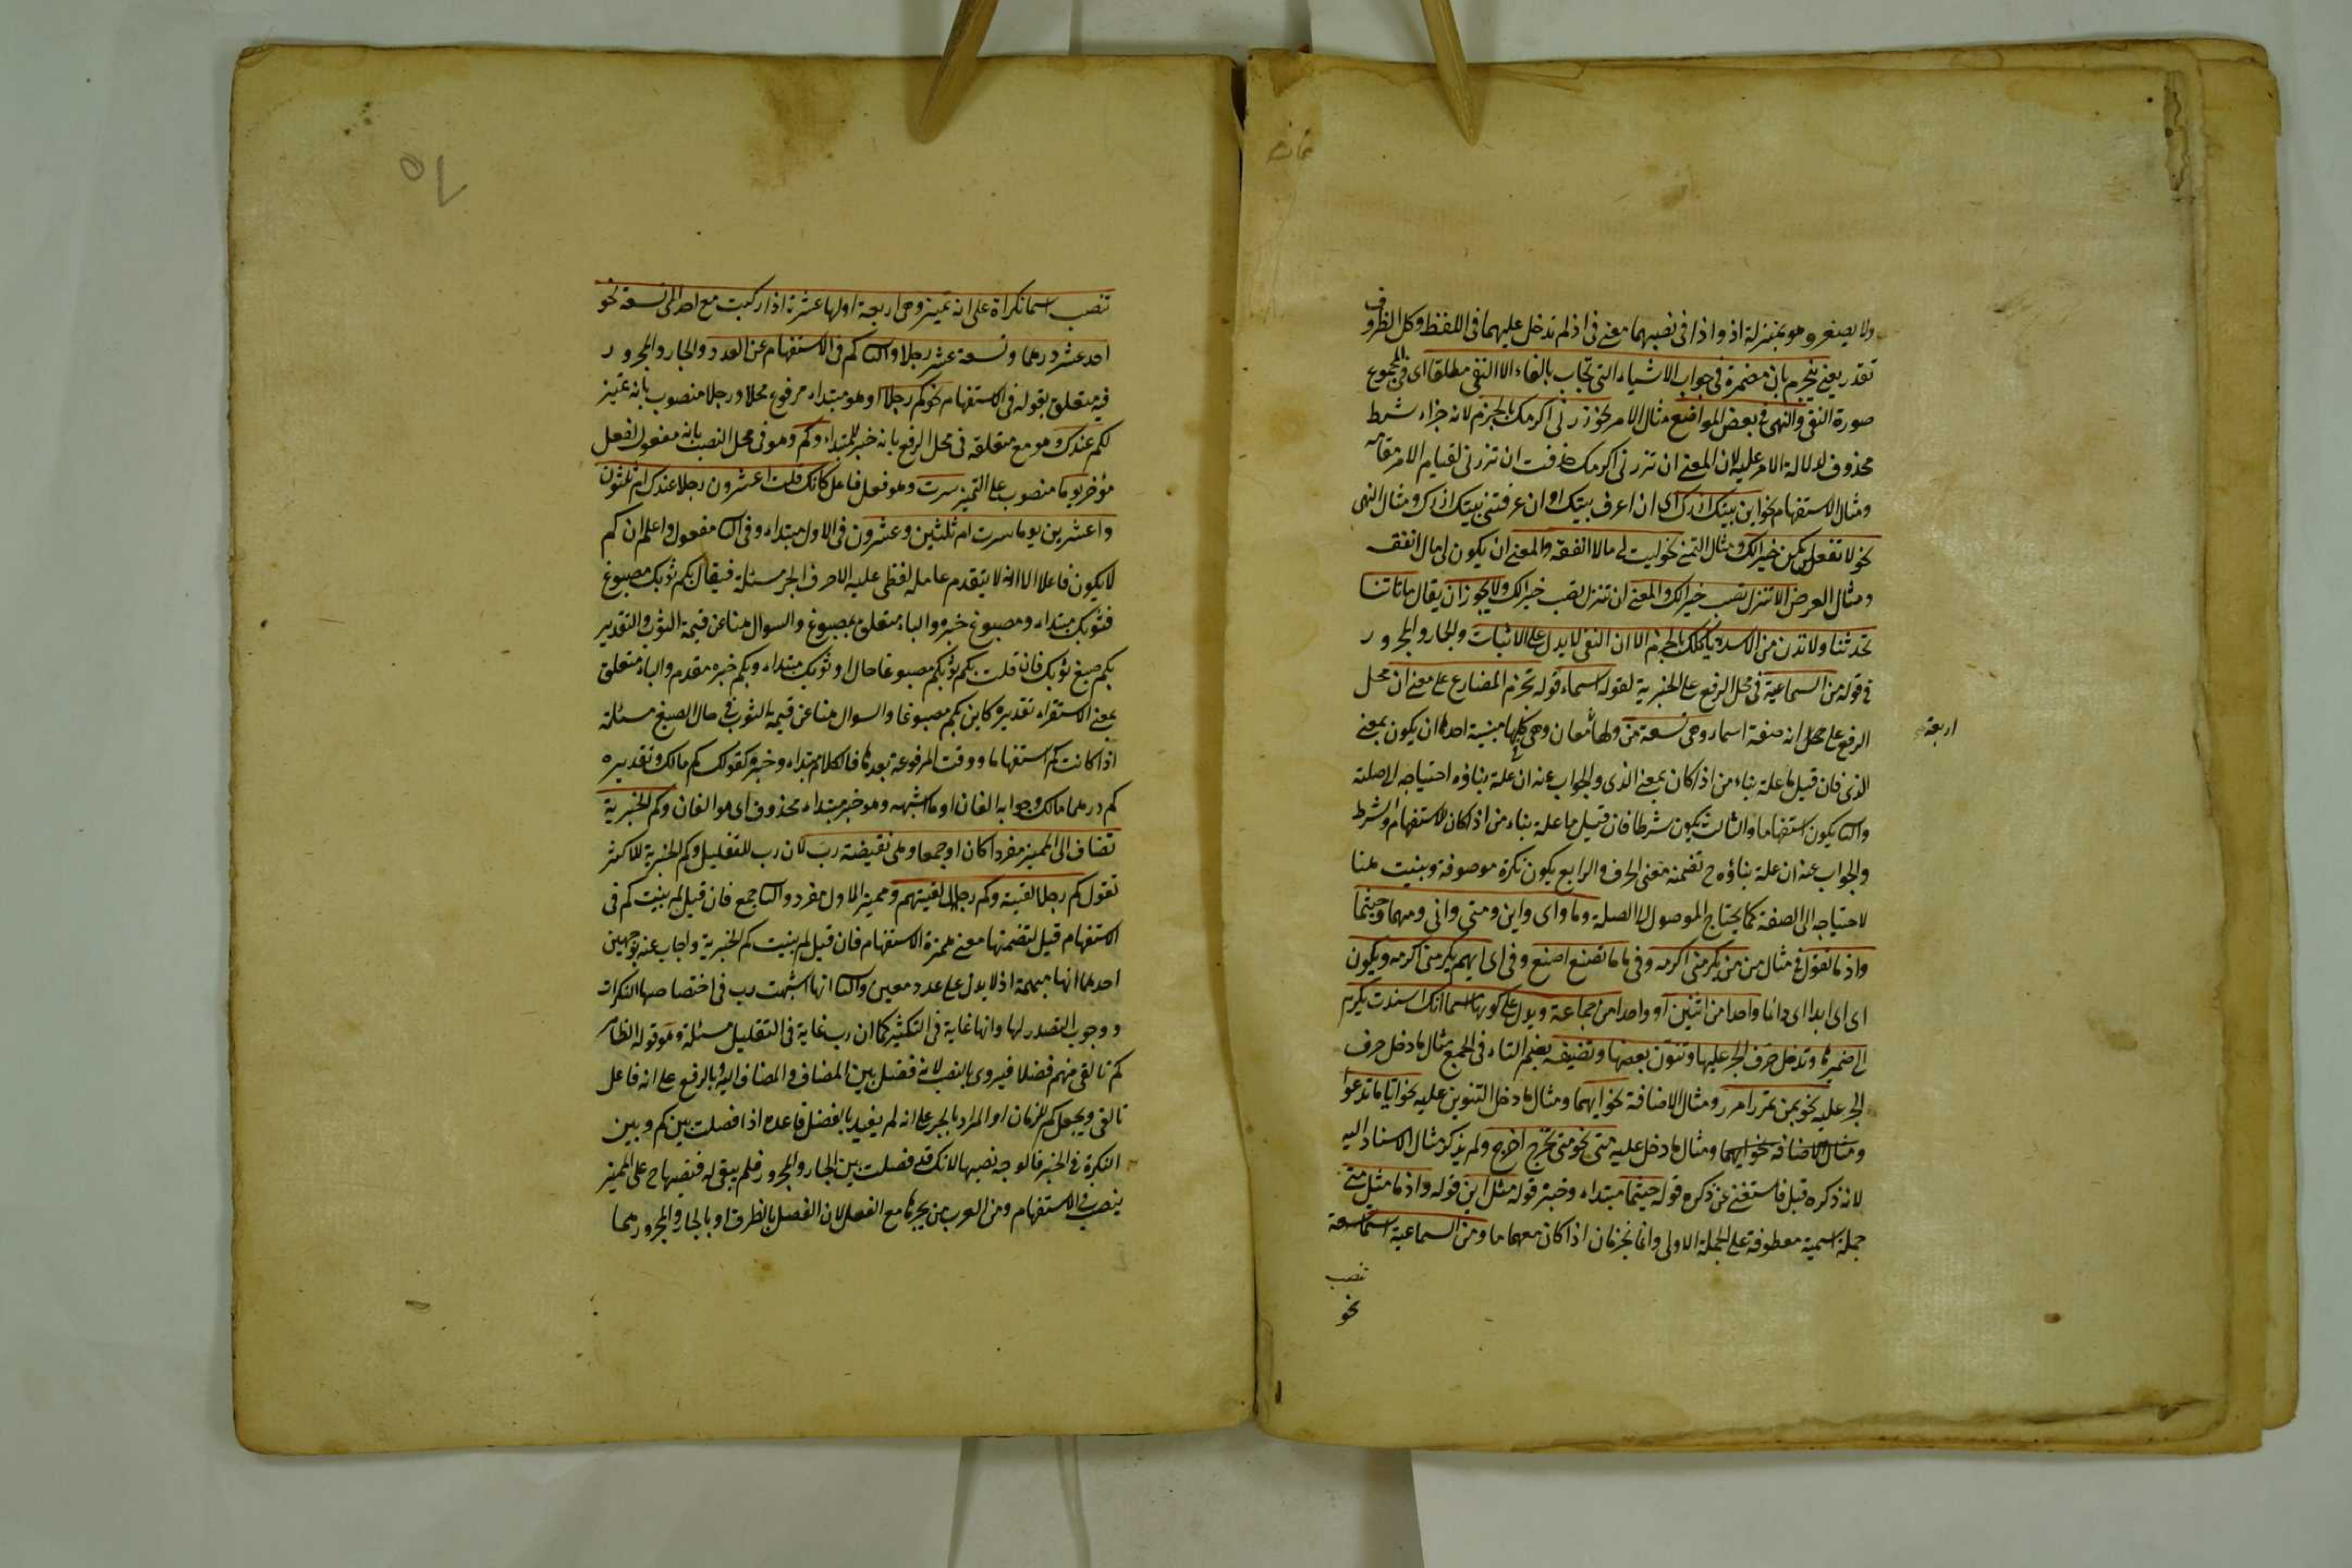 ولا يصغر وهو بمنزلة اذ واذا فى نصبهما معنى فى اذ لم تدخل عليهما فى اللفظ وكل الظروف
تقدر يعنى ينجزم بان مضمرة فى جواب الاشياء التى تجاب بالفاء الا النفى مطلقا اى فى المجموع
صورة النفى والنهى فى بعض المواضع مثال الامر نحو زرنى اكرمك بالجزم لانه جزاء شرط
محذوف لدلالة الامر عليه لان المعنى ان تزرنى اكرمك حذفت ان تزرنى لقيام الامر مقامه
ومثال الاستفهام نحو اين بيتك ازرك اى ان اعرف بيتك او ان عرفتنى بيتك ازرك ومثال النهى
نحو لا تفعل يكن خيرا لك ومثال التمنى نحو ليت لى مالا انفقه والمعنى ان يكون لى مال انفقه
ومثال العرض الا تنزل تصب خيرا لك والمعنى ان تنزل تصب خيرا لك ولا يجوز ان يقال ما تاتنا
تحدثنا ولا تدن من الاسد ياكلك بالجزم الا ان النفى لا يدل على الاثبات والجار والمجرور
فى قوله من السماعية فى محل الرفع على الخبرية لقوله اسماء قوله تجزم المضارع على معنى ان محل
الرفع على محل انه صفة اسماء وهى تسعة من ولها معان وهى كلها مبنية احدها ان يكون بمعنى
اربعة
الذى فان قيل ما علة بناء من اذا كان بمعنى الذى والجواب عنه ان علة بناؤه احتياجه الى صلته
والثانى يكون استفهاما والثالث يكون شرطا فان قيل ما علة بناء من اذا كان للاستفهام والشرط
والجواب عنه ان علة بناؤه ح تضمنه معنى الحرف والرابع يكون نكرة موصوفة وبنيت هنا
لاحتياجه الى الصفة كما يحتاج الموصول الى الصلة وما واى واين ومتى وانى ومهما وحيثما
واذ ما تقول فى مثال من من يكرمنى اكرمه وفى ما ما تصنع اصنع وفى اى ايهم يكرمنى اكرمه ويكون
اى اى ابدا اى دائما واحدا من اثنين او واحدا من جماعة ويدل على كونها اسما انك اسندت يكرم
الى ضميرها وتدخل حرف الجر عليها وتنون بعضها وتضيفه بضم التاء فى الجمع مثال ما دخل حرف
الجر عليه نحو بمن تمرر امرر ومثال الاضافة نحو ايهما ومثال ما دخل التنوين عليه نحو ايا ما تدعوا
ومثال الاضافة نحو ايهما ومثال ما دخل عليه متى نحو متى تخرج اخرج ولم يذكر مثال الاسناد اليه
لانه ذكره قبل فاستغنى عن ذكره قوله حيثما مبتداء وخبره قوله مثل اين قوله واذ ما مثل متى
جملة اسمية معطوفة على الجملة الاولى وانما تجزمان اذا كان معهما ما ومن السماعية اسماء تسعة
تنصب
نحو
تنصب اسما نكراة على انه تميز وهى اربعة اولها عشرة اذا ركبت مع احد الى تسعة نحو
احد عشر درهما وتسعة عشر رجلا والثانى كم فى الاستفهام عن العدد والجار والمجرور
فيه متعلق بقوله فى الاستفهام نحو كم رجلا وهو مبتداء مرفوع محلا ورجلا منصوب بانه تميز
لكم عندك وهو مع متعلقه فى محل الرفع بانه خبر للمبتداء وكم وهو فى محل النصب بانه مفعول لفعل
مؤخر يوما منصوب على التميز سرت وهو فعل فاعل كانك قلت اعشرون رجلا عندك ام ثلثون
واعشرين يوما سرت ام ثلثين وعشرون فى الاول مبتداء وفى الثانى مفعول واعلم ان كم
لا يكون فاعلا الا انه لا يتقدم عامله لفظى عليه الا حرف الجر مسئلة فيقال بكم ثوبك مصبوغ
فثوبك مبتداء ومصبوغ خبره والباء متعلق بمصبوغ والسوال هنا عن قيمة الثوب والتقدير
بكم صبغ ثوبك فان قلت بكم ثوبكم مصبوغا حال او ثوبك مبتداء وبكم خبره مقدم والباء متعلق
بمعنى الاستقراء تقديره كاين بكم مصبوغا والسوال هنا عن قيمة الثوب فى حال الصبغ مسئلة
اذا كانت كم استفهاما ووقت المرفوعة بعدها فالكلام مبتداء وخبر كقولك كم مالك وتقديره
كم درهما مالك وجوابه الفان او ما اشبهه وهو خبر مبتداء محذوف اى هو الفان وكم الخبرية
تضاف الى المميز مفردا كان او جمعا وهى نقيضة رب لان رب للتقليل وكم الخبرية للاكثر
تقول كم رجلا لقيته وكم رجال لقيتهم ومميز الاول مفرد والثانى جمع فان قيل لم بنيت كم فى
الاستفهام قيل لتضمنها معنى همزة الاستفهام فان قيل لم بنيت كم الخبرية واجاب عنه بوجهين
احدهما انها مبهمة اذ لا يدل على عدد معين والثانى انها اشبهت رب فى اختصاصها النكرات
ووجوب التصدر لها وانها غاية فى التكثير كما ان رب غاية فى التقليل مسئلة وهو قوله الظاهر
كم نالقى منهم فضلا فيروى بالنصب لانه فصل بين المضاف والمضاف اليه وبالرفع على انه فاعل
نالقى ويجعل كم للزمان او المراد بالجر على انه لم يقيد بالفصل قاعدة اذا فصلت بين كم وبين
النكرة فى الخبر فالوجه نصبها لانك قد فصلت بين الجار والمجرور فلم يبقى له فنصبها ح على المميز
ينصب فى الاستفهام ومن العرب من يجرها مع الفصل لان الفصل بالظرف او بالجار والمجرور هما